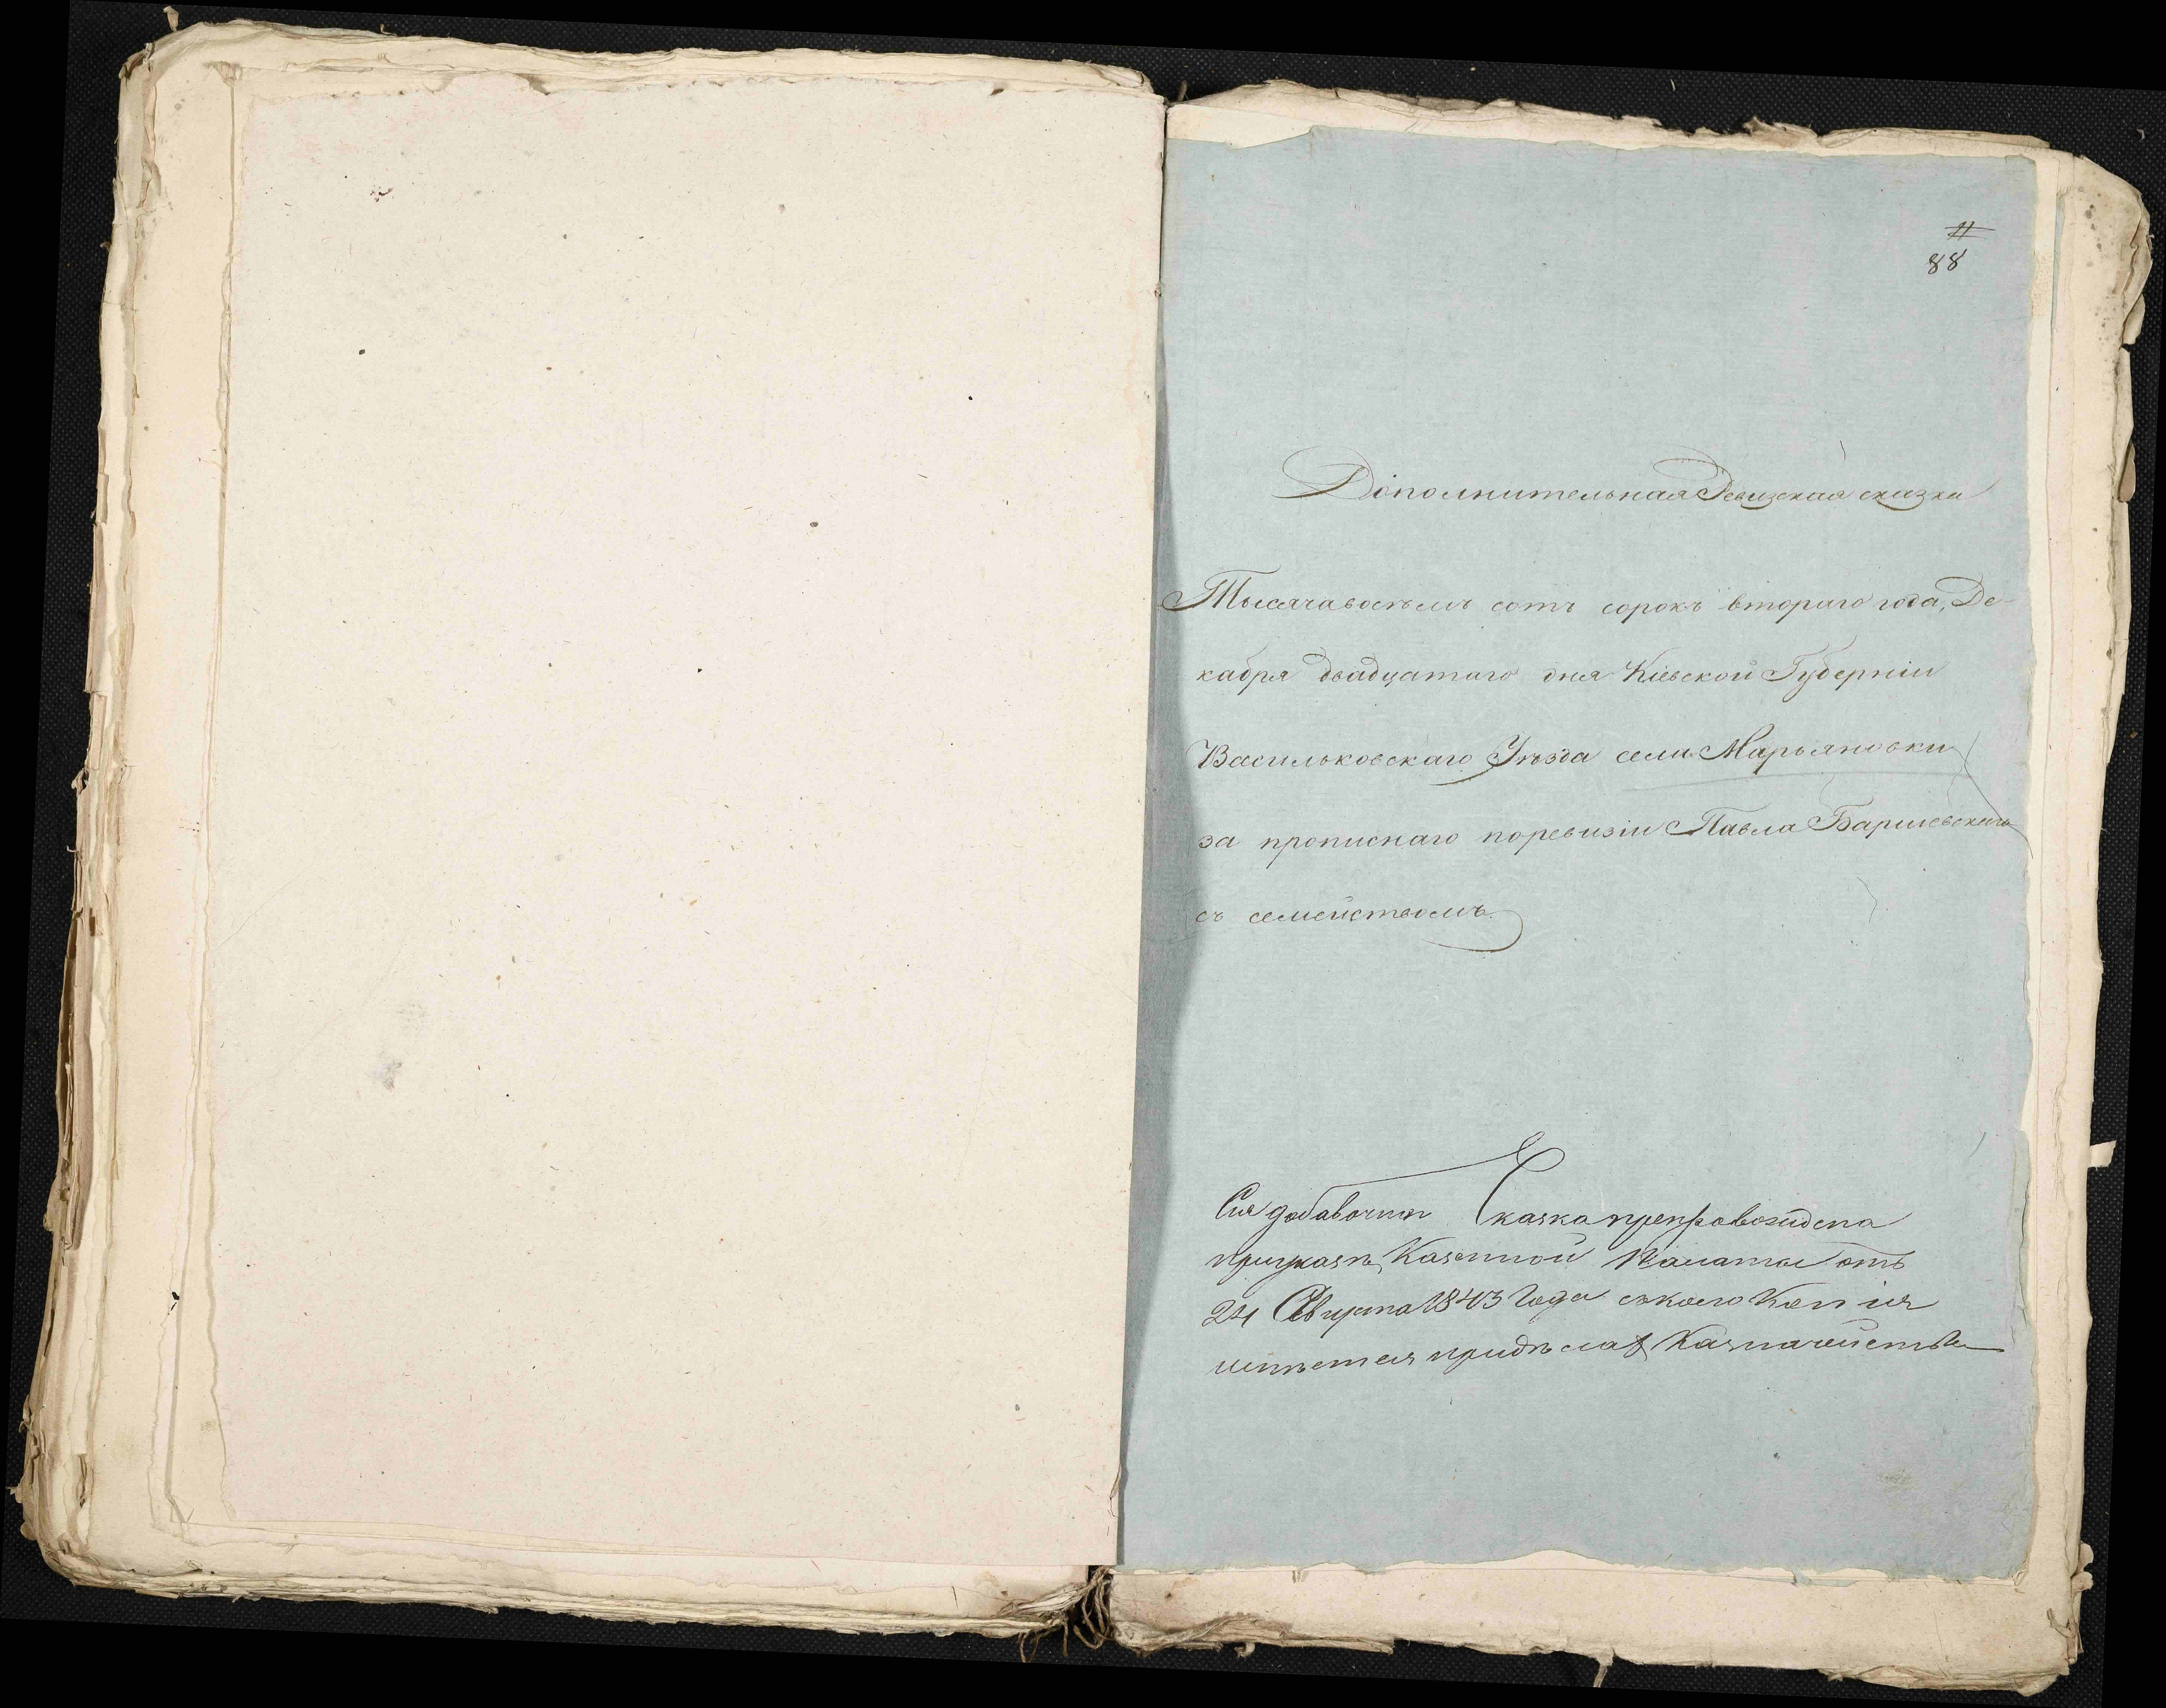 11
88
Дополнительная Ревизская сказка
Тысячавосемъ сотъ сорокъ втораго года, Де-
кабря двадцатаго дня Кіевской Губерніи
Васильковскаго Уѣзда села Марьяновки
за прописнаго поревизіи Павла Баришевскаго
съ семействомъ.
Сия добавочная Сказка препровождена
приуказѣ Казенной Палаты отъ
24 Августа 1843 Года съкоего Копия
имѣется придѣлах Казначейства